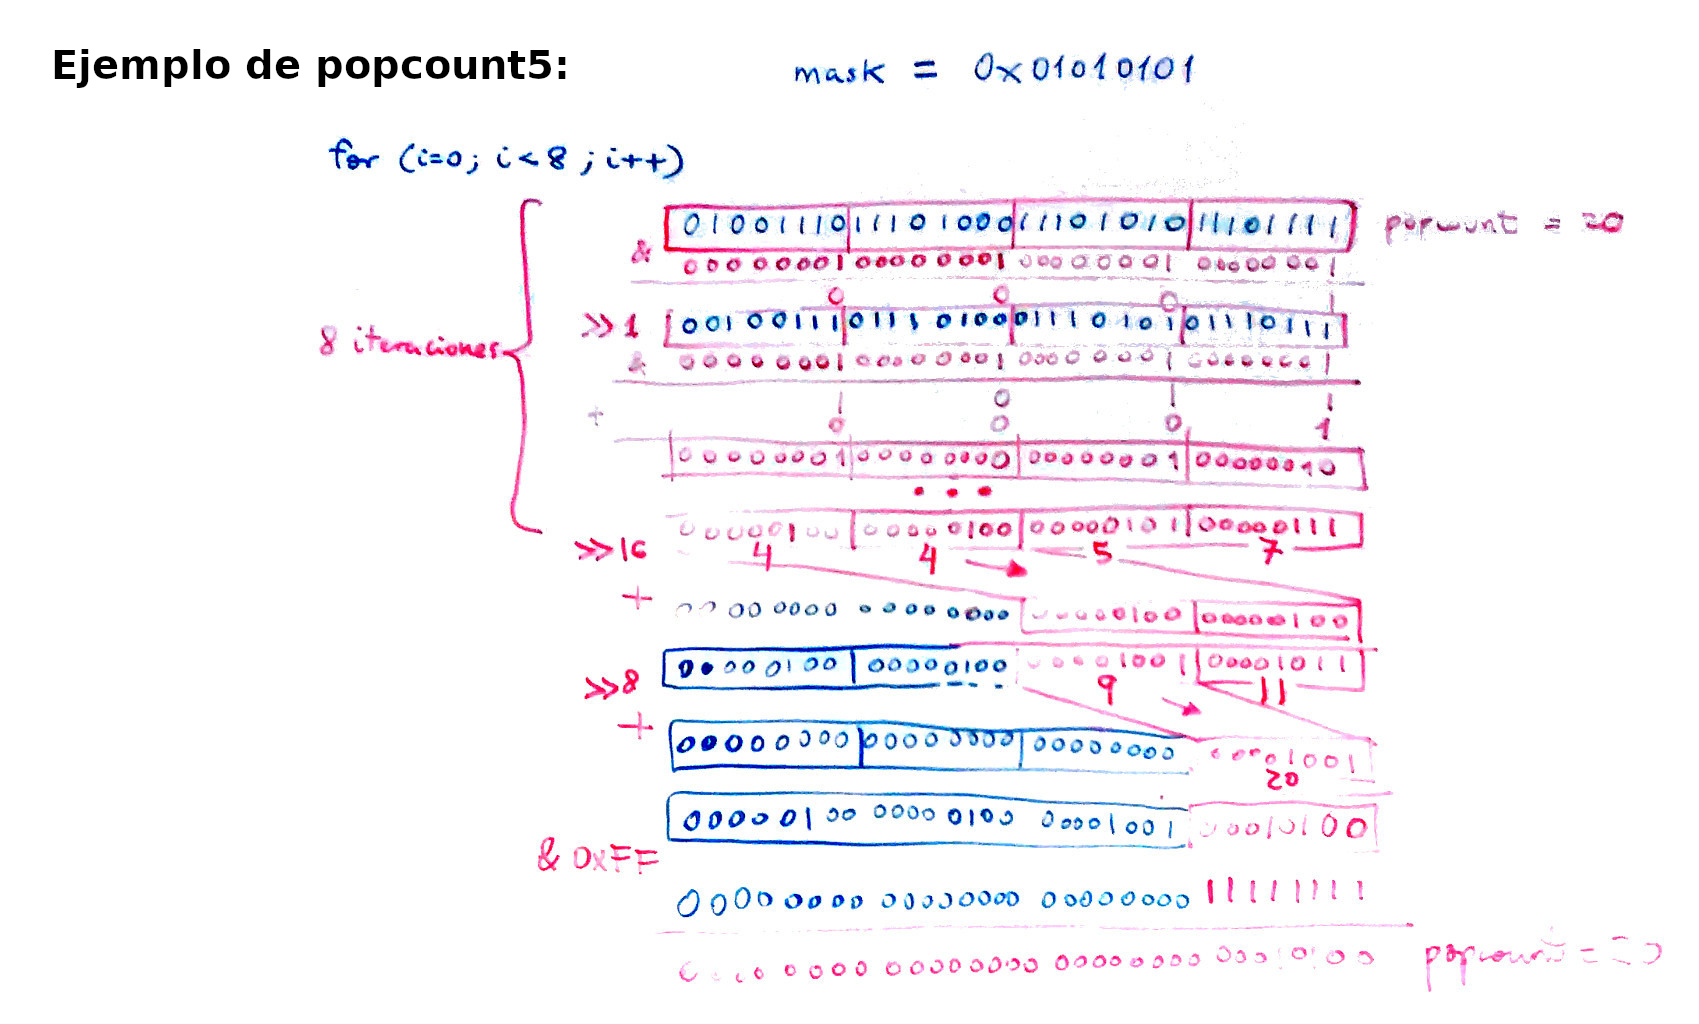 Ejemplo de popcount5:
mask = 0x01010101
for (i=0; i<8; i++)
01001110 11101000 11101010 11101111 popcount = 20
& 00000001 00000001 00000001 00000001
0 0 0 1
>>1 00100111 01110100 01110101 01110111
8 iteraciones
& 00000001 00000001 00000001 00000001
1 0 1 1
+ 0 0 0 1
00000001 00000000 00000001 00000010
...
00000100 00000100 00000101 00000111
>>16 4 4 5 7
+ 00000000 00000000 00000100 00000100
00000100 00000100 00001001 00001011
>>8 9 11
+ 00000000 00000000 00000000 00001001
20
00000100 00000100 00001001 00010100
& 0xFF
00000000 00000000 00000000 11111111
00000000 00000000 00000000 00010100 popcount = 20